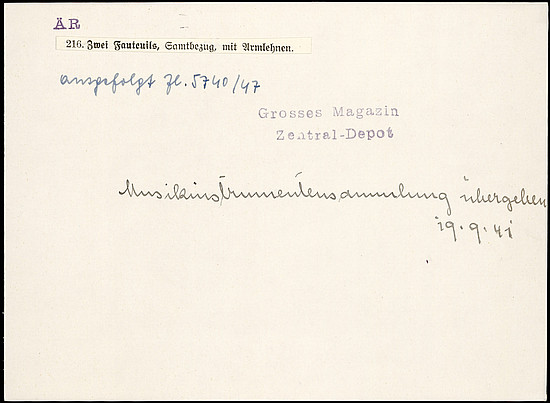 ÄR
216. Zwei Fauteuils, Samtbezug, mit Armlehnen.
ausgefolgt Zl. 5740/47
Grosses Magazin
Zentral-Depot
Musikinstrumentensammlung übergeben
19.9.41